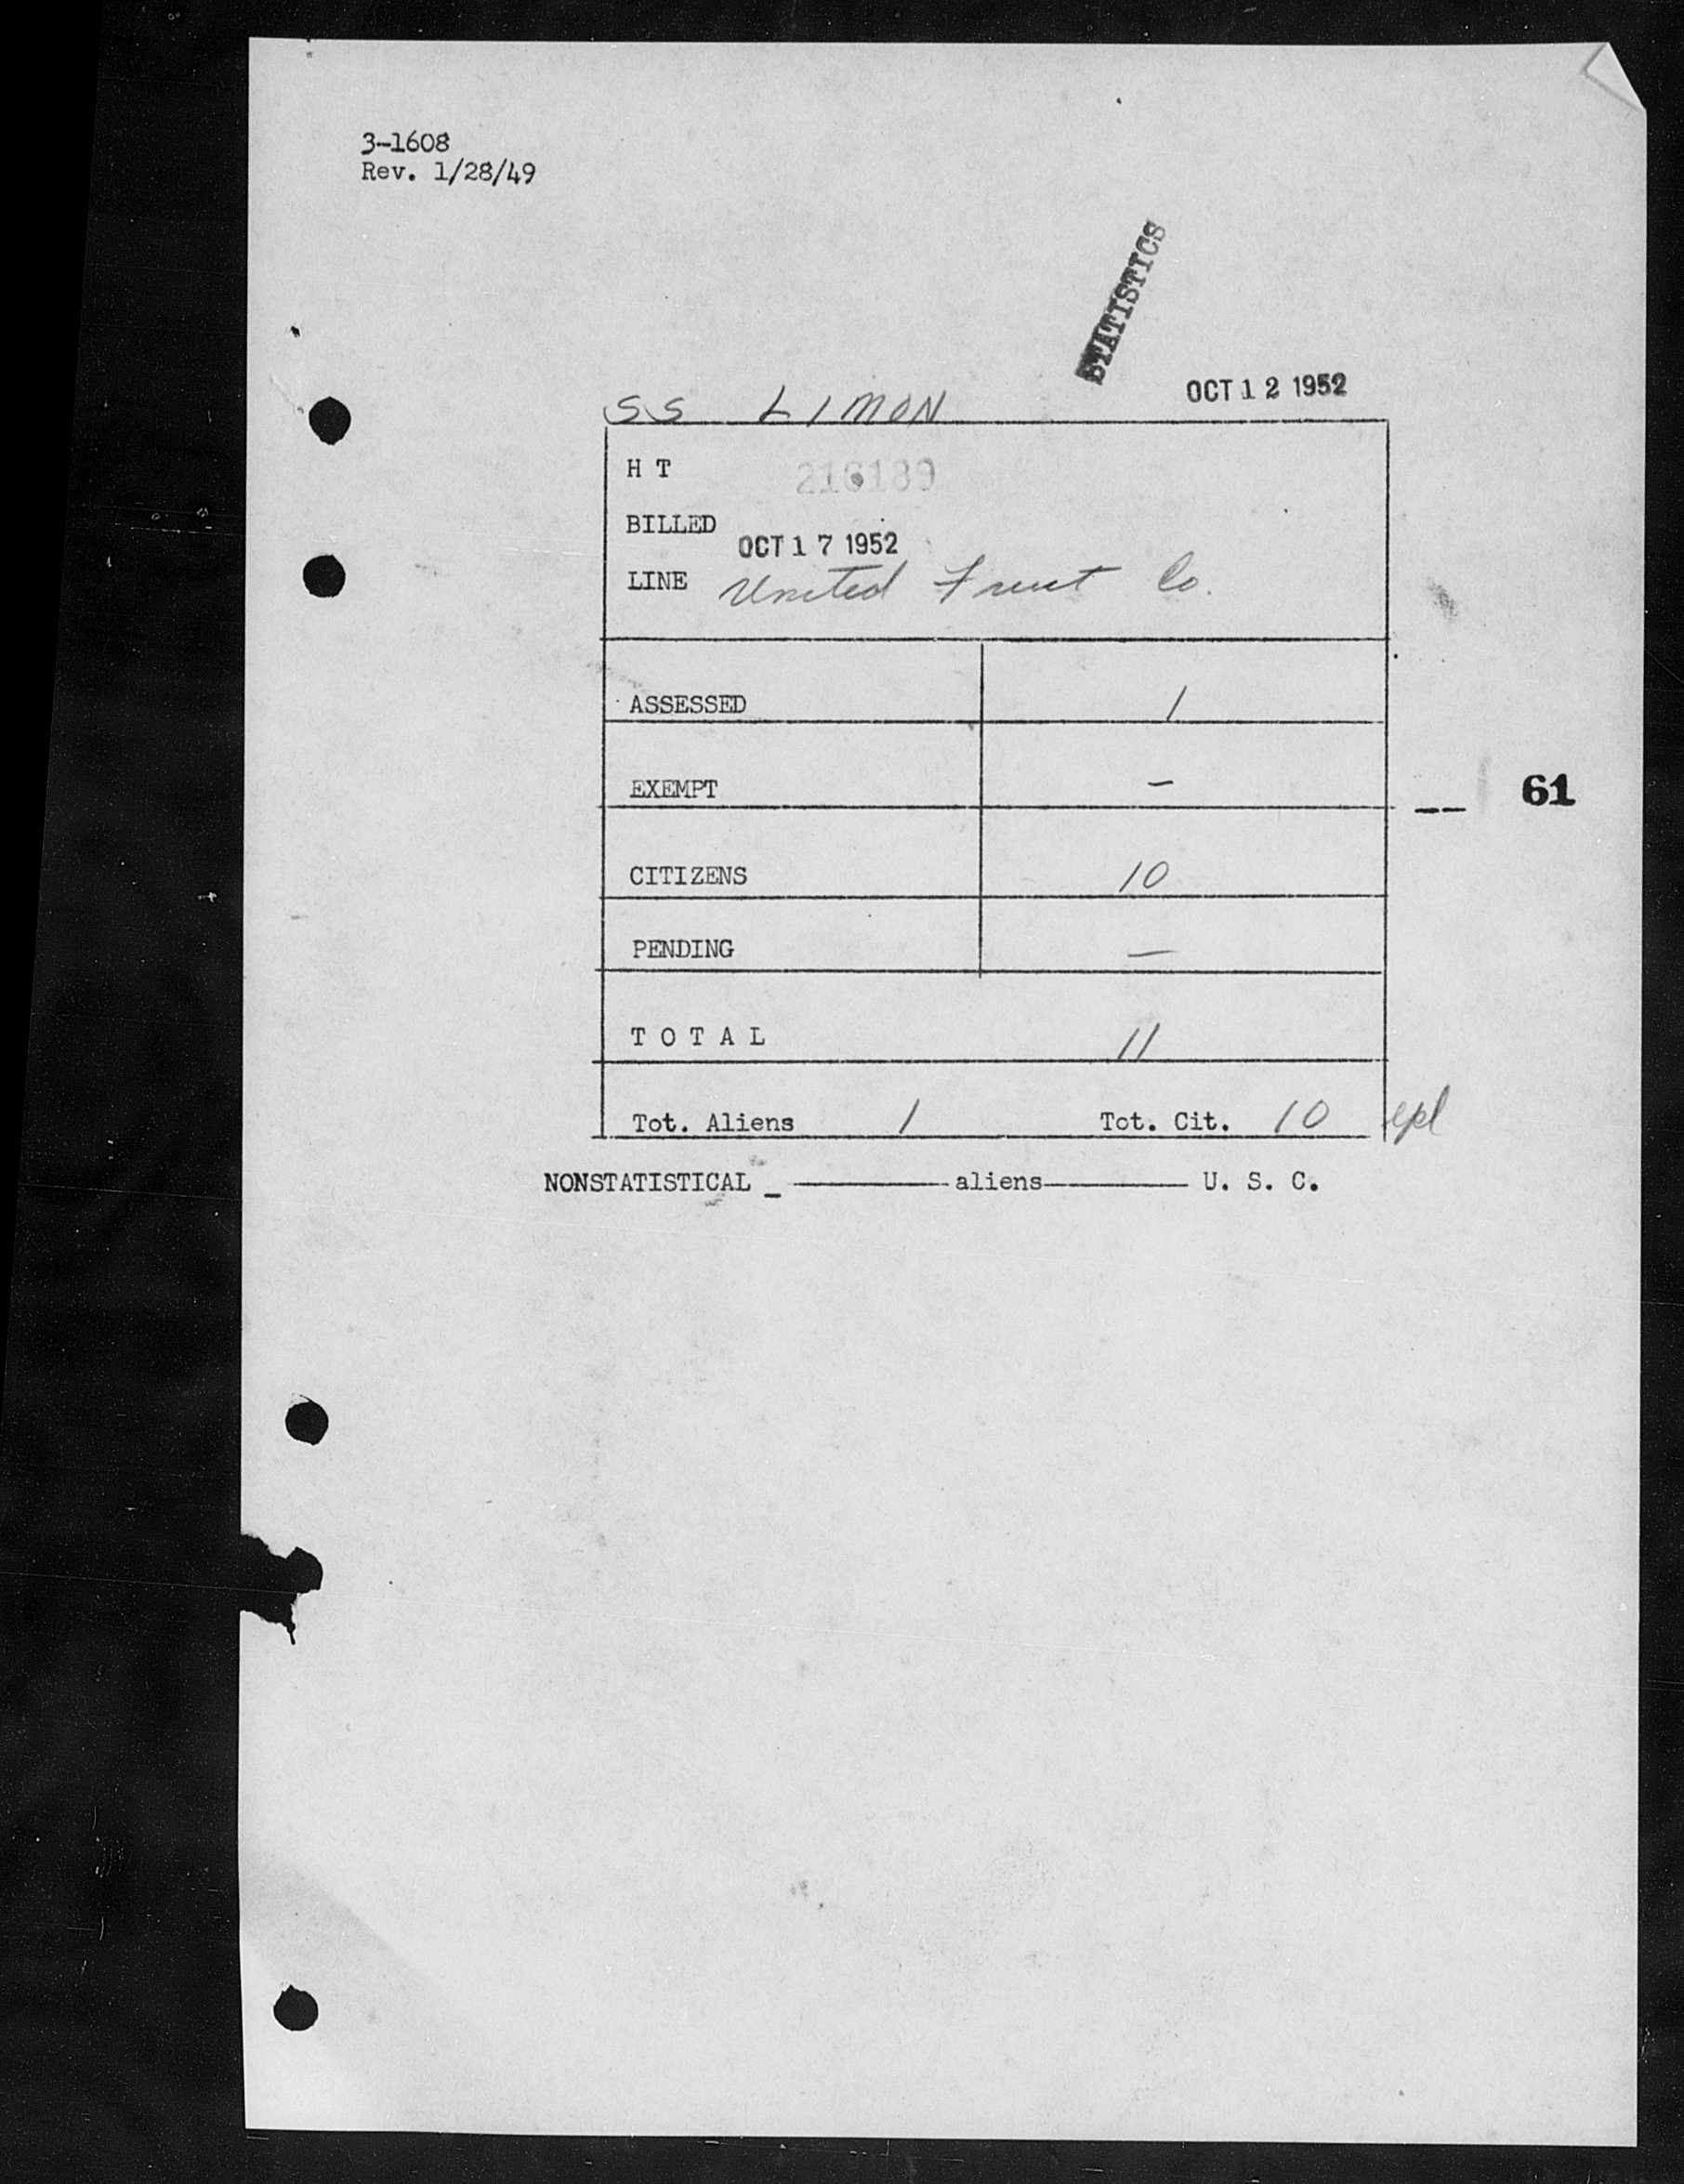 3-1608
Rev. 1/28/49
STATISTICS
OCT 12 1952
SS LIMON
H T 216189
BILLED
OCT 17 1952
LINE United Fruit Co.
ASSESSED 1
EXEMPT –
61
CITIZENS 10
PENDING –
T O T A L 11
Tot. Aliens 1 Tot. Cit. 10
NONSTATISTICAL _ ———— aliens ———— U. S. C.